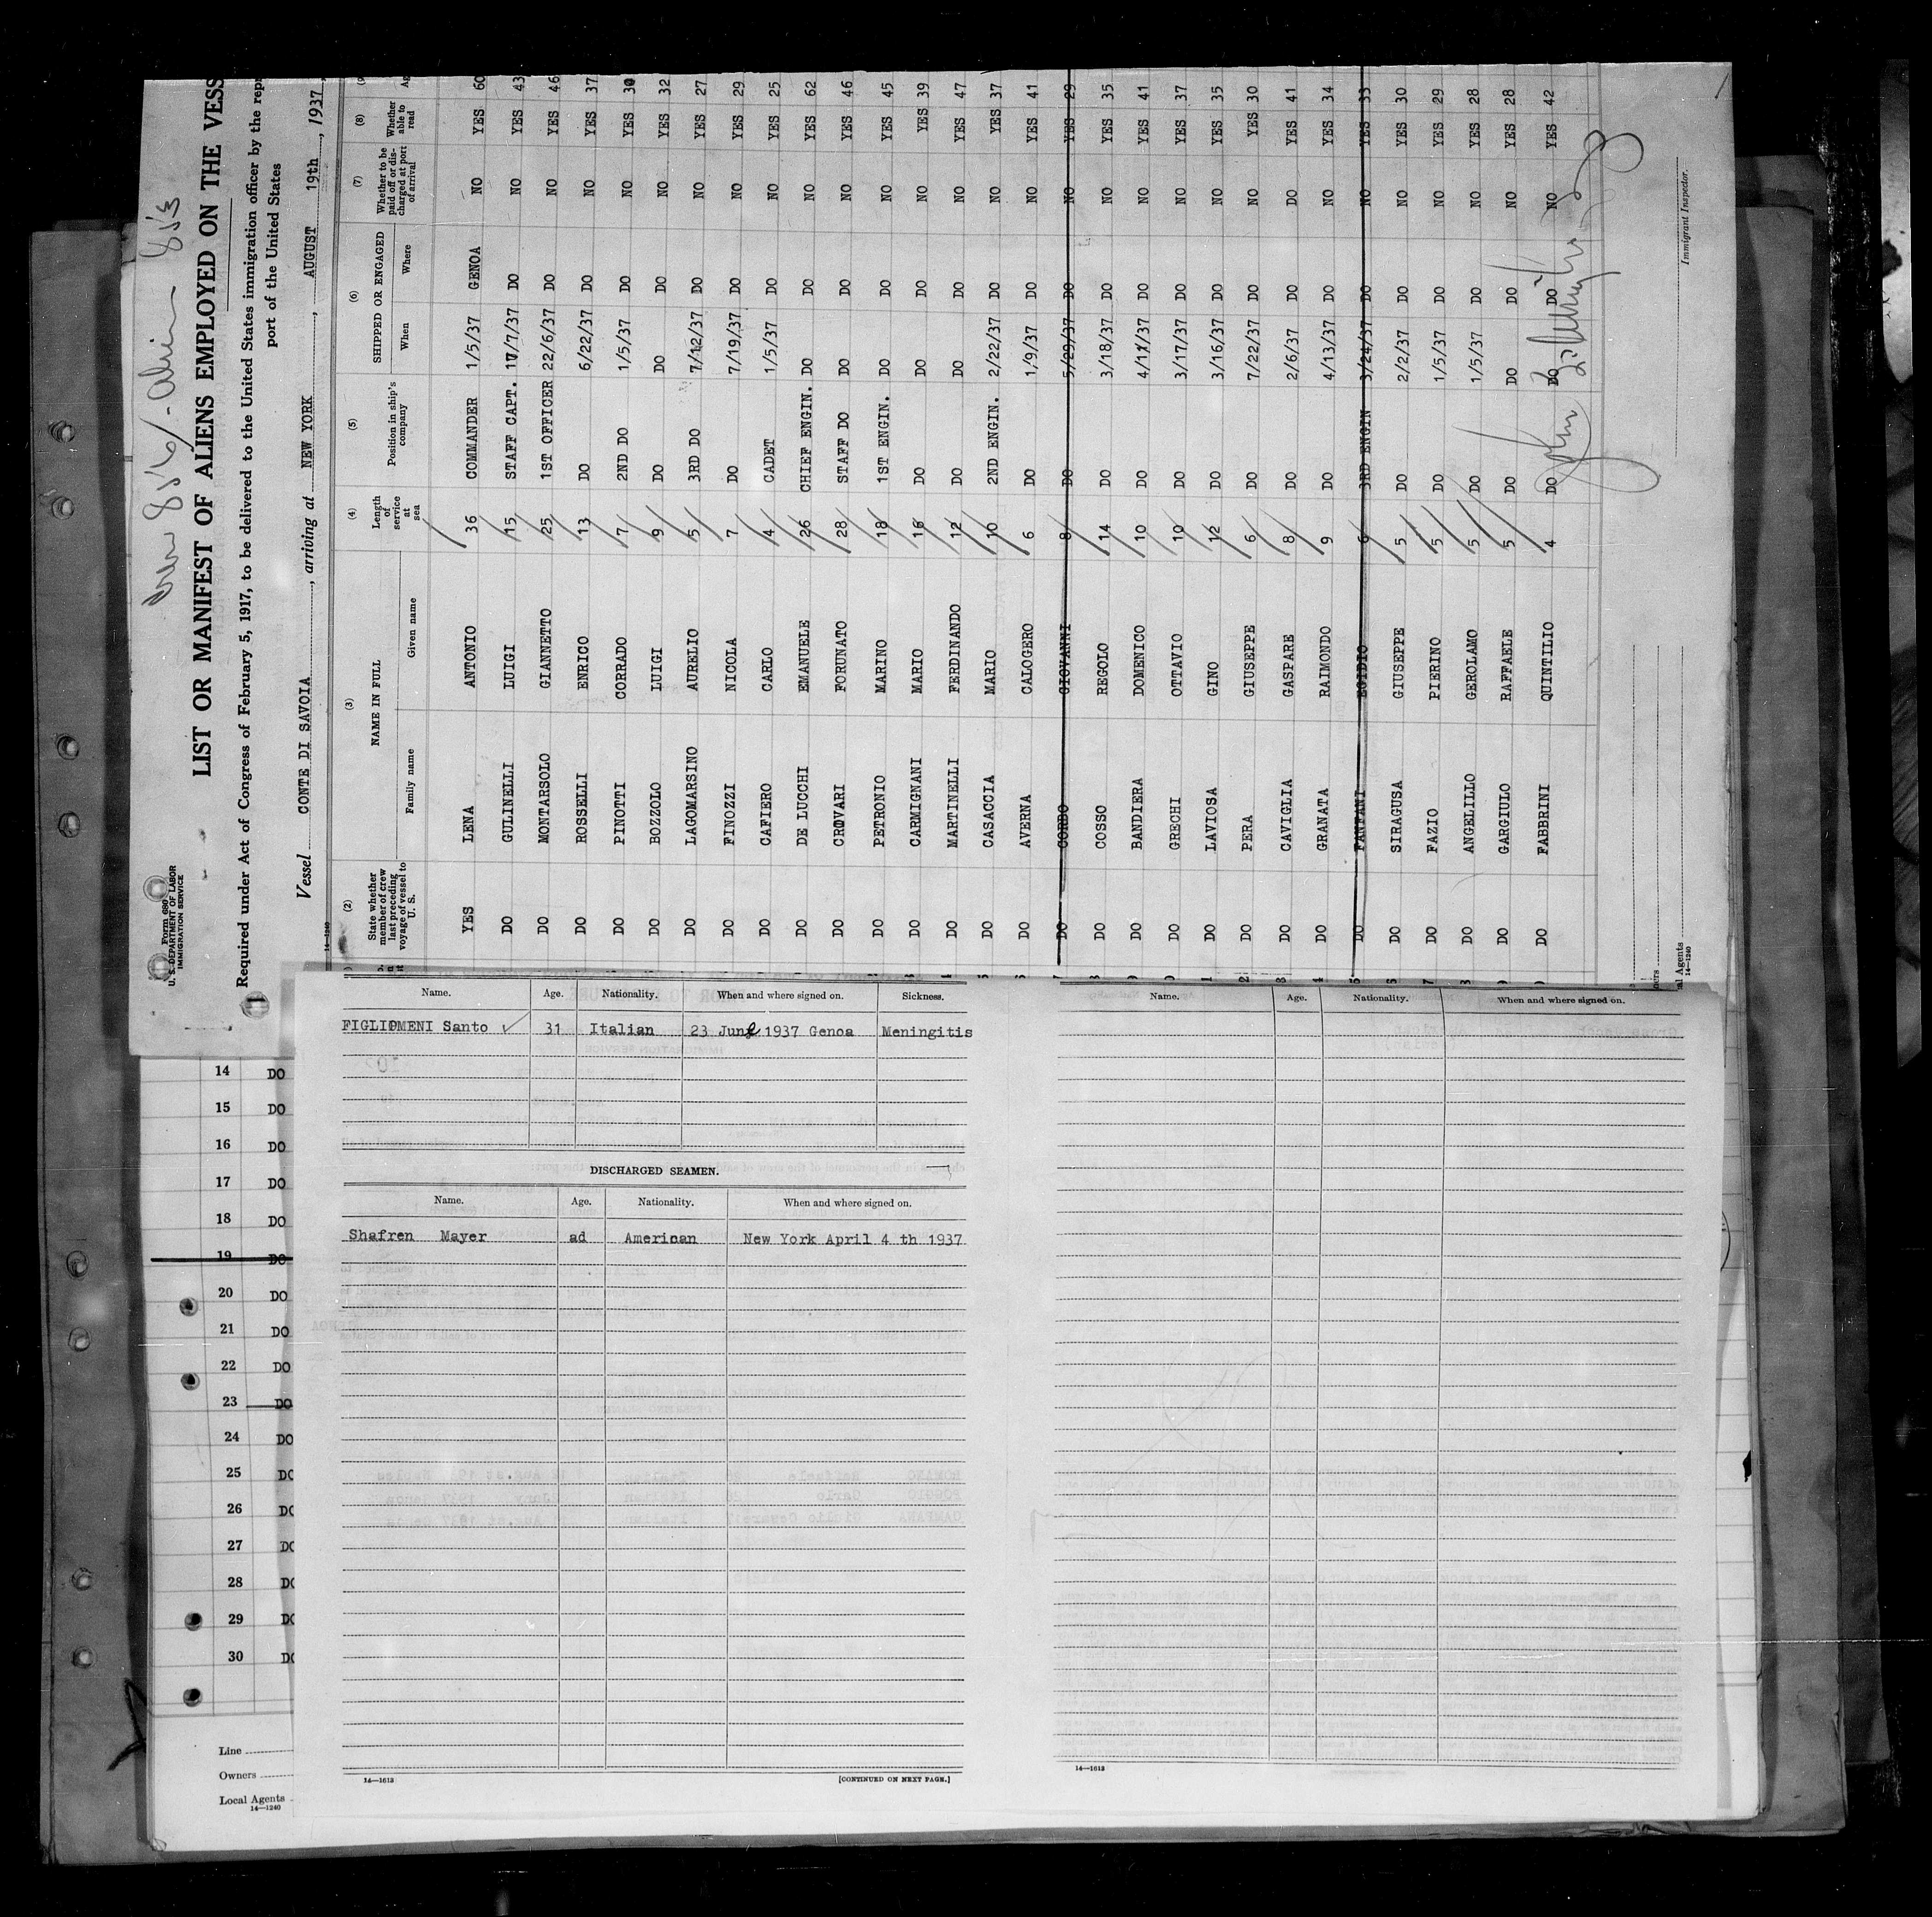 Form 680
U. S. DEPARTMENT OF LABOR
IMMIGRATION SERVICE
Crew 856
LIST OR MANIFEST OF ALIENS EMPLOYED ON THE VESS
Required under Act of Congress of February 5, 1917, to be delivered to the United States immigration officer by the repr
port of the United States
Vessel CONTE DI SAVOIA, arriving at NEW YORK, AUGUST 19th, 1937,
14-1240
(2) (3) (4) (5) (6) (7) (8)
State whether member of crew last preceding voyage of vessel to U. S. NAME IN FULL Length of service at sea Position in ship's company SHIPPED OR ENGAGED Whether to be paid off or discharged at port of arrival Whether able to read Ag
Family name Given name When Where
YES LENA ANTONIO 36 COMMANDER 1/5/37 GENOA NO YES 60
DO GULINELLI LUIGI 15 STAFF CAPT. 17/7/37 DO NO YES 43
DO MONTARSOLO GIANNETTO 25 1ST OFFICER 22/6/37 DO NO YES 46
DO ROSSELLI ENRICO 13 DO 6/22/37 DO NO YES 37
DO PINOTTI CORRADO 7 2ND DO 1/5/37 DO NO YES 30
DO BOZZOLO LUIGI 9 DO DO DO NO YES 32
DO LAGOMARSINO AURELIO 5 3RD DO 7/12/37 DO NO YES 27
DO FINOZZI NICOLA 7 DO 7/19/37 DO NO YES 29
DO CAFIERO CARLO 4 CADET 1/5/37 DO NO YES 25
DO DE LUCCHI EMANUELE 26 CHIEF ENGIN. DO DO NO YES 62
DO CROVARI FORUNATO 28 STAFF DO DO DO NO YES 46
DO PETRONIO MARINO 18 1ST ENGIN. DO DO NO YES 45
DO CARMIGNANI MARIO 16 DO DO DO NO YES 39
DO MARTINELLI FERDINANDO 12 DO DO DO NO YES 47
DO CASACCIA MARIO 10 2ND ENGIN. 2/22/37 DO NO YES 37
DO AVERNA CALOGERO 6 DO 1/9/37 DO NO YES 41
DO CORDO GIOVANNI 8 DO 5/29/37 DO NO YES 29
DO COSSO REGOLO 14 DO 3/18/37 DO NO YES 35
DO BANDIERA DOMENICO 10 DO 4/11/37 DO NO YES 41
DO GRECHI OTTAVIO 10 DO 3/17/37 DO NO YES 37
DO LAVIOSA GINO 12 DO 3/16/37 DO NO YES 35
DO PERA GIUSEPPE 6 DO 7/22/37 DO NO YES 30
DO CAVIGLIA GASPARE 8 DO 2/6/37 DO DO YES 41
DO GRANATA RAIMONDO 9 DO 4/13/37 DO NO YES 34
DO FANFANI EGIDIO 6 3RD ENGIN 3/24/37 DO NO YES 33
DO SIRAGUSA GIUSEPPE 5 DO 2/2/37 DO NO YES 30
DO FAZIO PIERINO 5 DO 1/5/37 DO NO YES 29
DO ANGELILLO GEROLAMO 5 DO 1/5/37 DO NO YES 28
DO GARGIULO RAFFAELE 5 DO DO DO NO YES 28
DO FABBRINI QUINTILIO 4 DO DO DO NO YES 42
John
Immigrant Inspector.
al Agents
14-1240
Name. Age. Nationality. When and where signed on. Sickness.
FIGLIOMENI Santo 31 Italian 23 June 1937 Genoa Meningitis
DISCHARGED SEAMEN.
Name. Age. Nationality. When and where signed on.
Shafren Mayer ad American New York April 4 th 1937
14—1613
[CONTINUED ON NEXT PAGE.]
Name. Age. Nationality. When and where signed on.
14—1613
14 DO
15 DO
16 DO
17 DO
18 DO
19 DO
20 DO
21 DO
22 DO
23 DO
24 DO
25 DO
26 DO
27 DO
28 DO
29 DO
30 DO
Line
Owners
Local Agents
14—1240